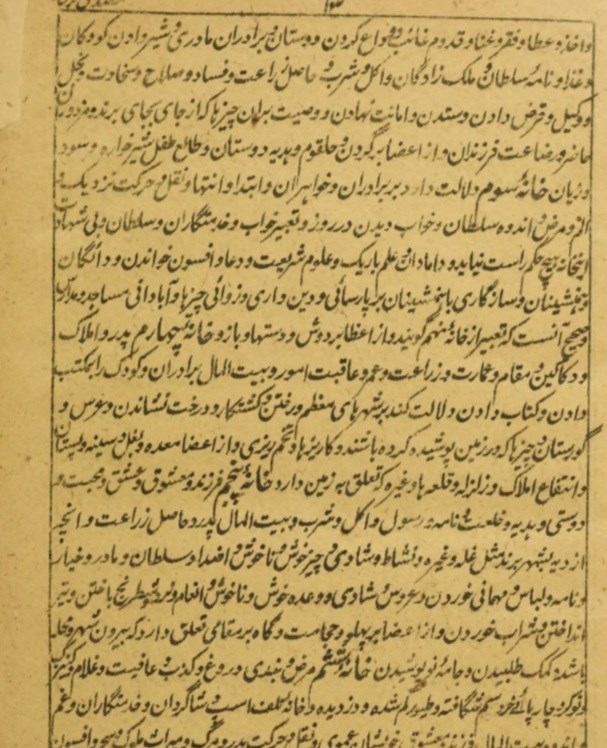 واخذ و عطا و فقر و غنا و قدوم غائب و وداع کردن دوستان و برادران مادری و شیر دادن کودکان
و غذا و نامهٔ سلطان و ملک زادگان و اکل و شرب و حاصل زراعت و فساد و صلاح و سخاوت و بخل
و وکیل و قرض دادن و ستدن و امانت نهادن و وصیت بران چیزها که از جای بجای برند و مزدوران
و رضاعت فرزندان و از اعضا بر گردن و حلقوم و هدیه دوستان و طالع طفل شیرخواره و سود
و زیان خانهٔ سوم دلالت دارد بر برادران و خواهران و ابتدا و انتها و نقل و حرکت نزدیک و
الم و مرض و اندوه سلطان و خواب دیدن در روز و تعبیر خواب و خدمتگاران و سلطان و بی شبهات
اینخانه هیچ حکم راست نیاید و دامادان و علم باریک و علوم شریعت و دعا و افسون خواندن و دانگان
و همنشینان و سازگاری با همنشینان بر پارسائی و دین داری و زوائی چیزها و آبادانی مساجد و
و صحیح آنست که تعبیر از خانهٔ نهم گویند و از اعضا بر دوش و دستها و بازو خانهٔ چهارم پدر و املاک
و دکاکین و مقام و عمارت و زراعت و عمر و عاقبت امور و بیت المال برادران و کودک را بمکتب
دادن و کتاب دادن دلالت کند بر شهرهای معظم و رختن و کشتکار و درخت نشاندن و عرس و
گورستان و چیزها که در زمین پوشیده کرده باشند و کاریزها و تخم ریزی و از اعضا معده و بغل و سینه و پستان
و انتفاع املاک و زلزله و قلعه ها و غیره که تعلق به زمین دارد خانهٔ پنجم فرزند و معشوق و عشق و محبت و
دوستی و هدیه و خلعت و نامه و رسول و اکل و شرب و بیت المال پدر و حاصل زراعت و انچه
از دیه بشهر برند مثل غله و غیره و نشاط و شادی و چیز خوش و ناخوش و اضداد سلطان و مادر و خیار
و نامه و لباس و مهمانی خوردن و عروس و شادی و وعده خوش و ناخوش و انعام و نرد و شطرنج باختن و تیر
انداختن و شراب خوردن و از اعضا بر پهلو و حجامت و گاه بر مقامی تعلق دارد که بیرون شهر و محله
باشد و کمک طلبیدن و جامهٔ نو پوشیدن خانهٔ ششم مرض و بندی و دروغ و کذب و عافیت و غلام و کنیزک
و نوکر و چارپائے خرد سم شگافته و طیور گم شده و دزدیده و خانهٔ تلف است و شاگردان و خدمتگاران و غم